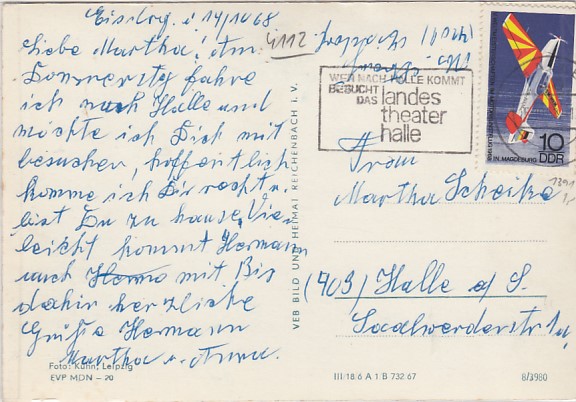 Eisbg. d 14/10 68
Liebe Martha! Am
Donnerstg fahre
ich nach Halle und
möchte ich Dich mit
besuchen, hoffentlich
komme ich Dir recht u.
bist Du zu hause, Viel
leicht kommt Hermann
auch mit Bis
dahin herzliche
Grüße Hermann
Martha u. Anna.
Foto: Kühn, Leipzig
EVP MDN – 20
VEB BILD UND HEIMAT REICHENBACH I. V.
4112
WER NACH HALLE KOMMT
BESUCHT
DAS landes
theater
halle
10
DDR
IN MAGDEBURG
Frau
Martha Scheike
(409) Halle a/S.
Saalwerderstr 1a,
III/18/6 A 1 B 732.67
8/3980